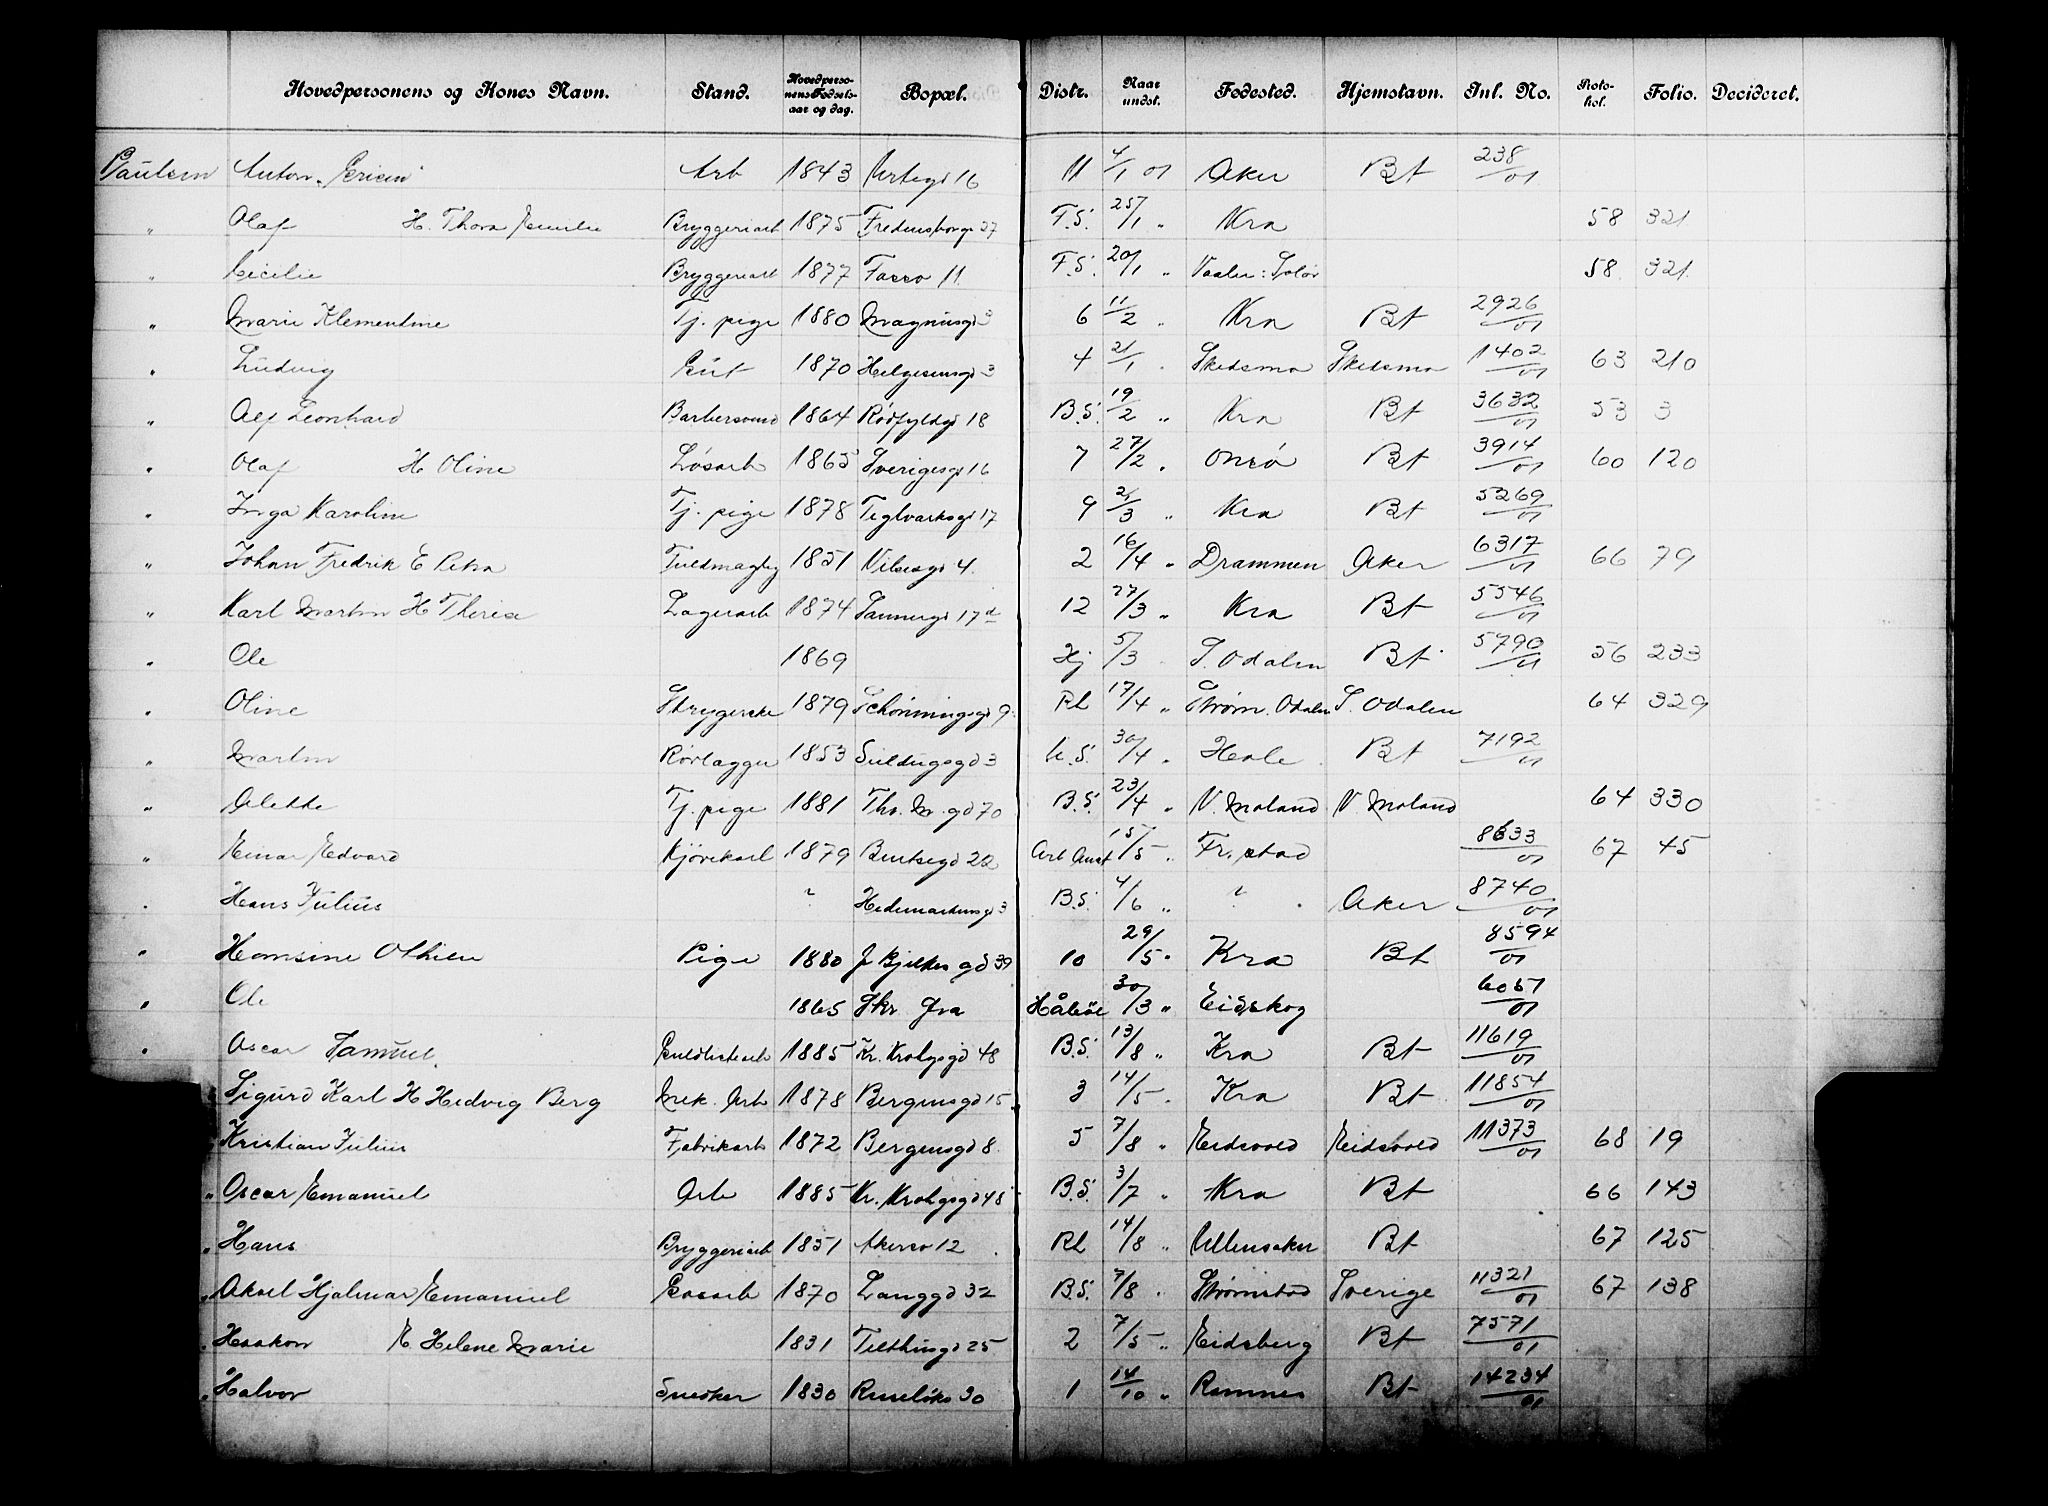 Hovedpersonens og Kones Navn. Stand. Hovedpersonens Fødselsaar og dag. Bopæl. Distr. Naar undst. Fødested. Hjemstavn. Inl. No. Protokol. Folio. Decideret.
Paulsen Anton Arb 1843 Urtegd 16 11 4/1 01 Aker Bt 238/01
" Olaf H. Thora Emilie Bryggeriarb 1875 Fredensborgv 27 F.S. 25/1 " Kra 58 321
" Cicilie Bryggeriarb 1877 Fosso 11 F.S. 20/1 " Vaaler: Solør 58 321
" Marie Klementine Tj. pige 1880 Magnusgd 3 6 11/2 " Kra Bt 2926/01
" Ludvig Gut 1870 Helgesensgd 3 4 21/1 " Skedsmo Skedsmo 1402/01 63 210
" Alf Leonhard Barbersvend 1864 Rødfyldgd 18 B.S. 19/2 " Kra Bt 3632/01 53 3
" Olaf H Oline Løsarb 1865 Sverigesgd 16 7 27/2 " Onsø Bt 3914/01 60 120
" Inga Karoline Tj. pige 1878 Teglværksgd 17 9 2/3 " Kra Bt 5269/01
" Johan Fredrik E Petra Fuldmægtig 1851 Nilsesgd 4 2 16/4 " Drammen Aker 6317/01 66 79
" Karl Martin H Therese Lagerarb 1874 Sannergd 17d 12 27/3 " Kra Bt 5546/01
" Ole 1869 Hj 5/3 S. Odalen Bt 5790/01 56 233
" Oline Strygerske 1879 Schønningsgd 9 Rh 17/4 " Strøm. Odalen S. Odalen 64 329
" Martin Rørlægger 1853 Suldugsgd 3 U.S. 30/4 " Hole Bt 7192/01
" Alette Tj. pige 1881 Thv. M. gd 70 B.S. 23/4 " V. Moland V. Moland 64 330
" Einar Edvard Kjørekarl 1879 Bentsegd 22 Arb Anst 15/5 " Fr. stad 8633/01 67 45
" Hans Julius ? Hedemarkensgd 3 B.S. 4/6 " ? Aker 8740/01
" Hansine Othilie Pige 1880 J Bjelkes gd 39 10 29/5 " Kra Bt 8594/01
" Ole 1865 Skr Gra Håbøl 30/3 " Eidskog 6051/01
" Oscar Samuel Guldlistearb 1885 Kr. Krohgsgd 48 B.S. 13/8 " Kra Bt 11619/01
Sigurd Karl H Hedvig Berg Mek. Arb 1878 Bergensgd 15 3 14/5 " Kra Bt 11854/01
Kristian Julius Fabrikarb 1872 Bergensgd 8 5 7/8 " Eidsvold Eidsvold 11373/01 68 19
" Oscar Emanuel Arb 1885 Kr. Krohgsgd 48 B.S. 3/7 " Kra Bt 66 143
" Hans Bryggeriarb 1851 Akersv 12 Rh 14/8 " Ullensaker Bt 67 125
" Aksel Hjalmar Emanuel Gasarb 1870 Langgd 32 B.S. 7/8 " Strømstad Sverige 11321/01 67 138
" Haakon E Helene Marie 1831 Telthusgd 25 2 7/5 " Eidsberg Bt 7571/01
" Halvor Snedker 1830 Ruseløkv 30 1 14/10 " Ramnes Bt 14234/01